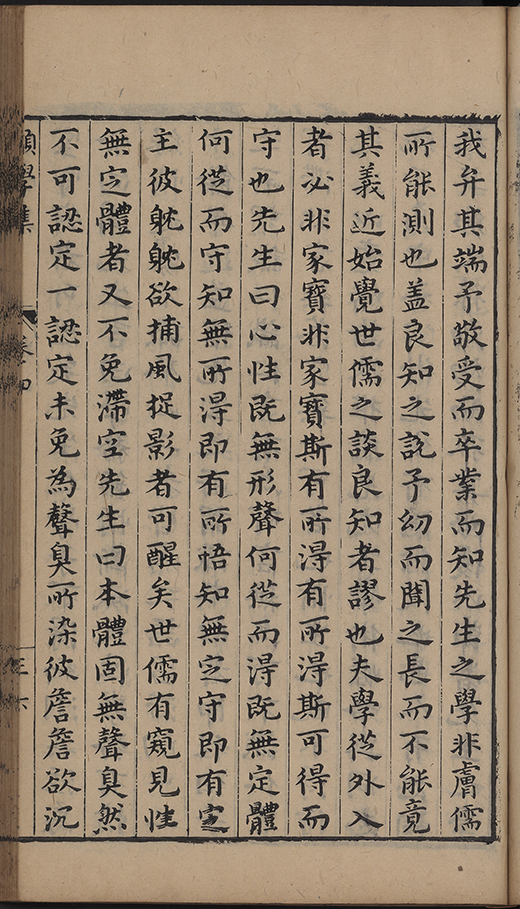 我弁其端予敬受而卒業而知先生之學非膚儒
所能測也盖良知之說予幼而聞之長而不能竟
其義近始覺世儒之談良知者謬也夫學從外入
者必非家寶非家寶斯有所得有所得斯可得而
守也先生曰心性既無形聲何從而得既無定體
何從而守知無所得即有所悟知無定守即有定
主彼躭躭欲捕風捉影者可醒矣世儒有窺見性
無定體者又不免滯空先生曰本體固無聲臭然
不可認定一認定未免為聲臭所染彼詹詹欲沉
願學集
卷四